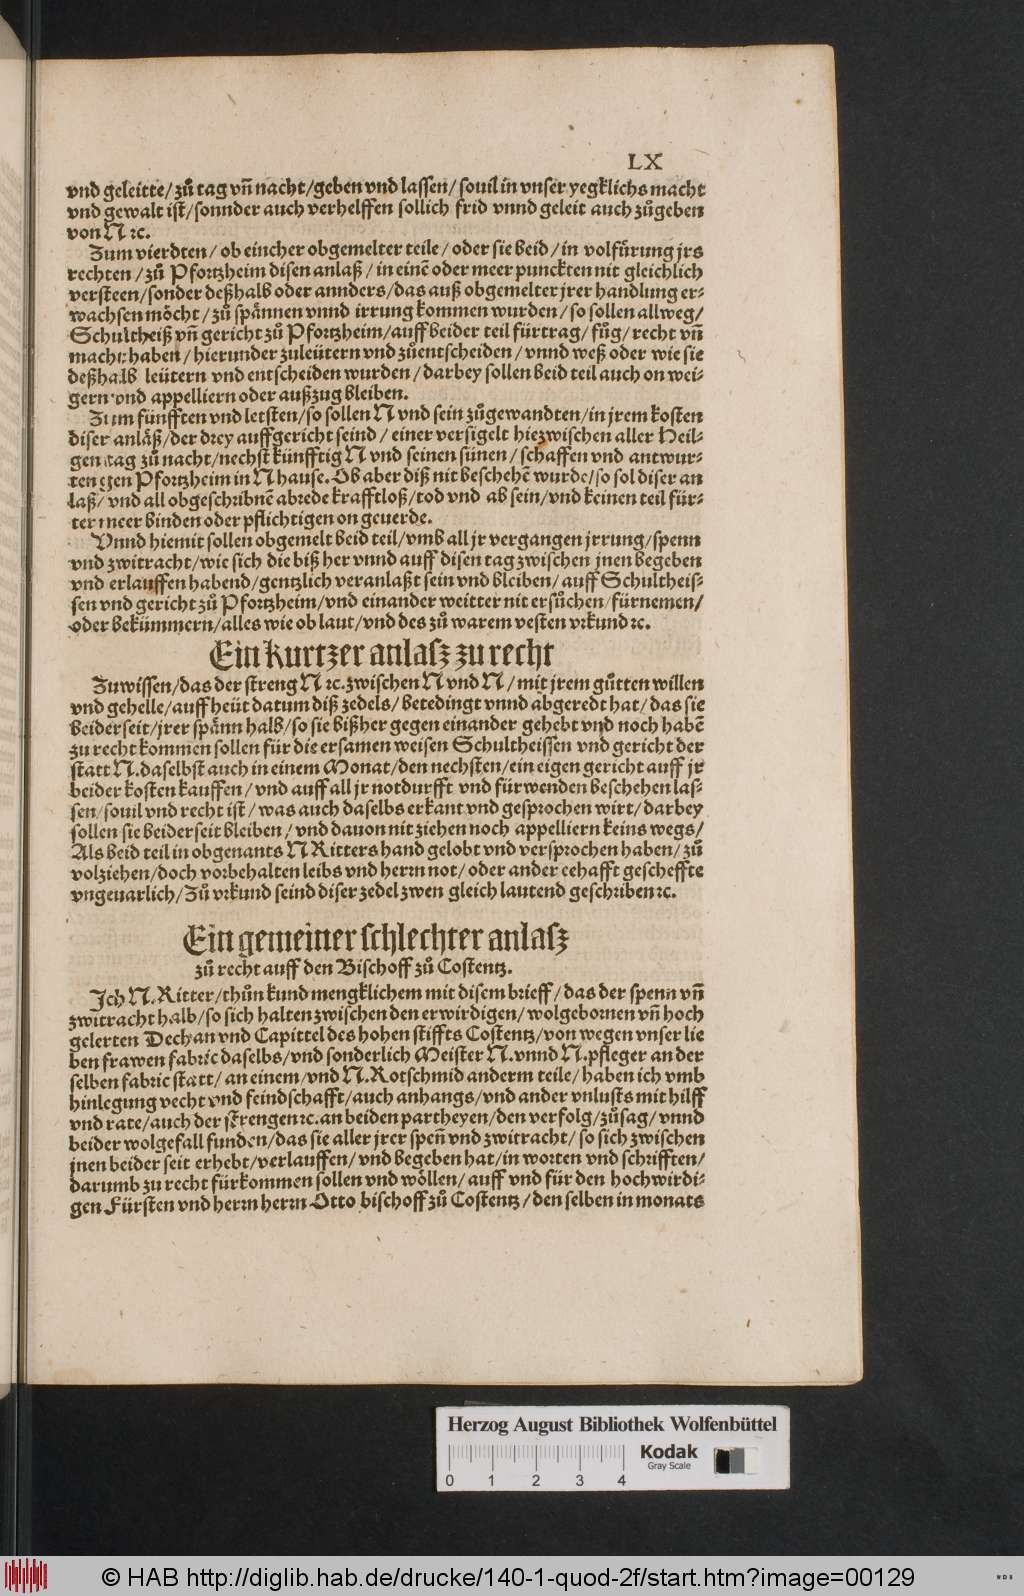 LX
vnd geleitte/zů tag vñ nacht/geben vnd lassen/souil in vnser yegklichs macht
vnd gewalt ist/sonnder auch verhelffen sollich frid vnnd geleit auch zůgeben
von N ꝛc.
Zum vierdten/ob eincher obgemelter teile/oder sie beid/in volfürung jrs
rechten/zů Pfortzheim disen anlaß/in einẽ oder meer punckten nit gleichlich
versteen/sonder deßhalb oder annders/das auß obgemelter jrer handlung er⸗
wachsen möcht/zů spännen vnnd irrung kommen wurden/so sollen allweg/
Schultheiß vñ gericht zů Pfortzheim/auff beider teil fürtrag/fůg/recht vñ
macht haben/hierunder zuleütern vnd zůentscheiden/vnnd weß oder wie sie
deßhalb leütern vnd entscheiden wurden/darbey sollen beid teil auch on wei⸗
gern vnd appelliern oder außzug bleiben.
Zum fünfften vnd letsten/so sollen N vnd sein zůgewandten/in jrem kosten
diser anläß/der drey auffgericht seind/einer versigelt hiezwischen aller Heil⸗
gen tag zů nacht/nechst künfftig N vnd seinen sünen/schaffen vnd antwur⸗
ten gen Pfortzheim in N hause. Ob aber diß nit beschehẽ wurde/so sol diser an
laß/vnd all obgeschribnẽ abrede krafftloß/tod vnd ab sein/vnd keinen teil für⸗
ter meer binden oder pflichtigen on geuerde.
Vnnd hiemit sollen obgemelt beid teil/vmb all jr vergangen jrrung/spenn
vnd zwitracht/wie sich die biß her vnnd auff disen tag zwischen jnen begeben
vnd erlauffen habend/gentzlich veranlaßt sein vnd bleiben/auff Schultheis⸗
sen vnd gericht zů Pfortzheim/vnd einander weitter nit ersůchen/fürnemen/
oder bekümmern/alles wie ob laut/vnd des zů warem vesten vrkund ꝛc.
Ein kurtzer anlasz zu recht
Zuwissen/das der streng N ꝛc. zwischen N vnd N/mit jrem gůtten willen
vnd gehelle/auff heüt datum diß zedels/betedingt vnnd abgeredt hat/das sie
beiderseit/jrer spänn halb/so sie bißher gegen einander gehebt vnd noch habẽ
zu recht kommen sollen für die ersamen weisen Schultheissen vnd gericht der
statt N. daselbst auch in einem Monat/den nechsten/ein eigen gericht auff jr
beider kosten kauffen/vnd auff all jr notdurfft vnd fürwenden beschehen las⸗
sen/souil vnd recht ist/was auch daselbs erkant vnd gesprochen wirt/darbey
sollen sie beiderseit bleiben/vnd dauon nit ziehen noch appelliern keins wegs/
Als beid teil in obgenants N Ritters hand gelobt vnd versprochen haben/zů
volziehen/doch vorbehalten leibs vnd herrn not/oder ander eehafft gescheffte
vngeuarlich/Zů vrkund seind diser zedel zwen gleich lautend geschriben ꝛc.
Ein gemeiner schlechter anlasz
zů recht auff den Bischoff zů Costentz.
Ich N. Ritter/thůn kund mengklichem mit disem brieff/das der spenn vñ
zwitracht halb/so sich halten zwischen den erwirdigen/wolgebornen vñ hoch
gelerten Dechan vnd Capittel des hohen stiffts Costentz/von wegen vnser lie
ben frawen fabric daselbs/vnd sonderlich Meister N. vnnd N. pfleger an der
selben fabric statt/an einem/vnd N. Rotschmid anderm teile/haben ich vmb
hinlegung vecht vnd feindschafft/auch anhangs/vnd ander vnlusts mit hilff
vnd rate/auch der strengen ꝛc. an beiden partheyen/den verfolg/zůsag/vnnd
beider wolgefall funden/das sie aller jrer speñ vnd zwitracht/so sich zwischen
jnen beider seit erhebt/verlauffen/vnd begeben hat/in worten vnd schrifften/
darumb zu recht fürkommen sollen vnd wöllen/auff vnd für den hochwirdi⸗
gen Fürsten vnd herrn herrn Otto bischoff zů Costentz/den selben in monats
Herzog August Bibliothek Wolfenbüttel
Kodak
Gray Scale
0 1 2 3 4
© HAB http://diglib.hab.de/drucke/140-1-quod-2f/start.htm?image=00129